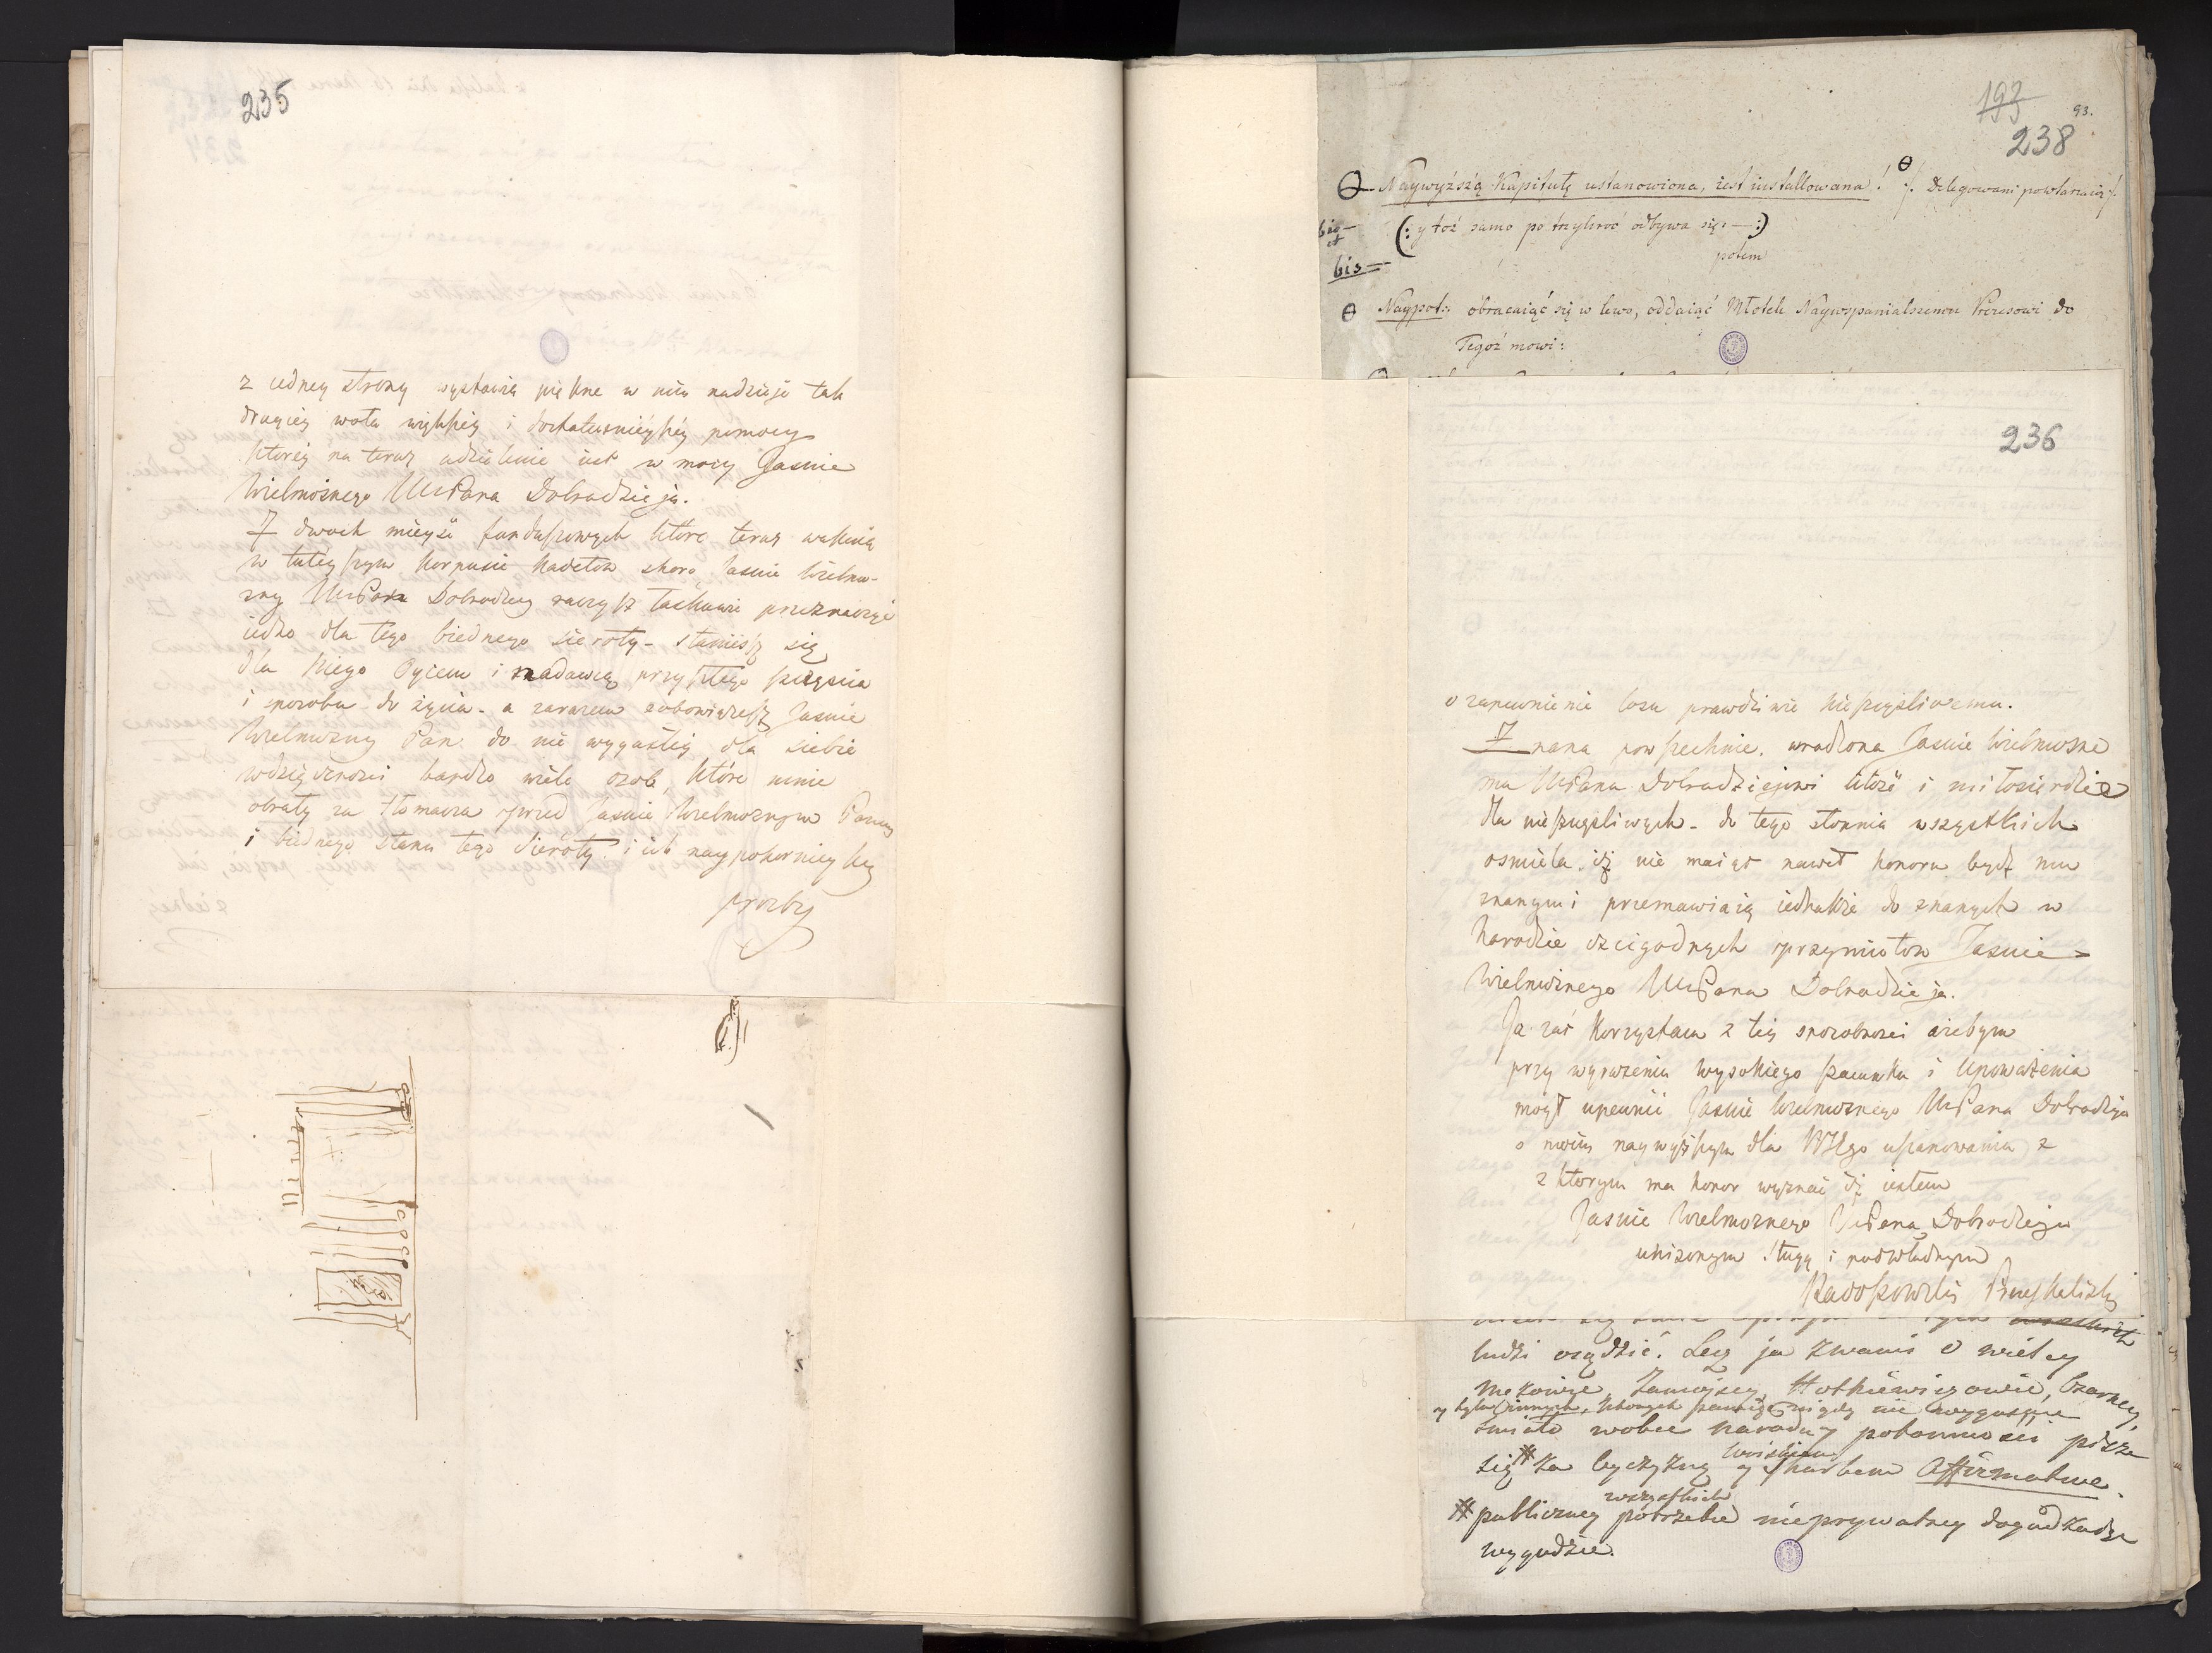 235
z iedney strony wystawia piękne w nim nadzieje tak
drugiey woła większey i dostatecznieyszey pomocy
którey na teraz udzielenie iest w mocy Jasnie
Wielmożnego WMPana Dobrodzieja.
Z dwoch mieysc funduszowych które teraz wakuią
w tuteyszym Korpusie Kadetow skoro Jasnie Wielmo-
żny WMPan Dobrodziey raczysz łaskawie przeznaczyć
iedno dla tego biednego sieroty - staniesz się
dla niego Oycem i nadawcą przyszłego szczęscia
i sposobu do życia - a zarazem zobowiążesz Jasnie
Wielmożny Pan do nie wygasłey dla siebie
wdzięczności bardzo wiele osob, które mnie
obrały za tłomacza przed Jasnie Wielmożnym Panem
i biednego stanu tego sieroty i ich naypokornieyszey
prozby
193
93.
238
Naywyższą Kapitułę ustanowiona, iest installowana! ⁒ Delegowani powtarzaią ⁒
bis
et
bis =
(: y toż samo po trzykroć odbywa się. — :)
potem
Naypot: obracaiąć się w lewo, oddaiąć Młotek Naywspanialszemu Prezesowi do
Tegoż mowi:
236
o zapewnienie losu prawdziwie nieszczęsliwemu.
Znana powszechnie, wrodzona Jasnie Wielmożne
mu WMPanu Dobrodziejowi litość i miłosierdzie
dla nieszczęsliwych - do tego stopnia wszystkich
osmiela, iż nie maiąc nawet honoru bydź mu
znanymi przemawiaią iednakże do znanych w
Narodzie czcigodnych przymiotow Jasnie =
Wielmożnego WMPana Dobrodzieja.
Ja zaś korzystam z tey sposobności ażebym
przy wyrażeniu wysokiego szacunku i upoważenia
mógł upewnić Jasnie Wielmożnego WMPana Dobrodzieja
o moim naywyższym dla Niego uszanowaniu z
z którym ma honor wyznać iż iestem
Jasnie Wielmożnego WMPana Dobrodzieja
uniżonym sługą i podwładnym
Radoszewski
ludzi osądzić. Lecz ja zwami o wielcy
mężowie, Zamojscy, Hotkiewiczowie, Czarnecy,
y tylu innych, których pamięć nigdy nie wygaśnie
śmiało wobec narodu y potomności piszę
się # za Oyczyzną y Skarbem Affirmative.
# publiczney wszystkich potrzebie nieprywatney dogadzaiąc
wygodzie.